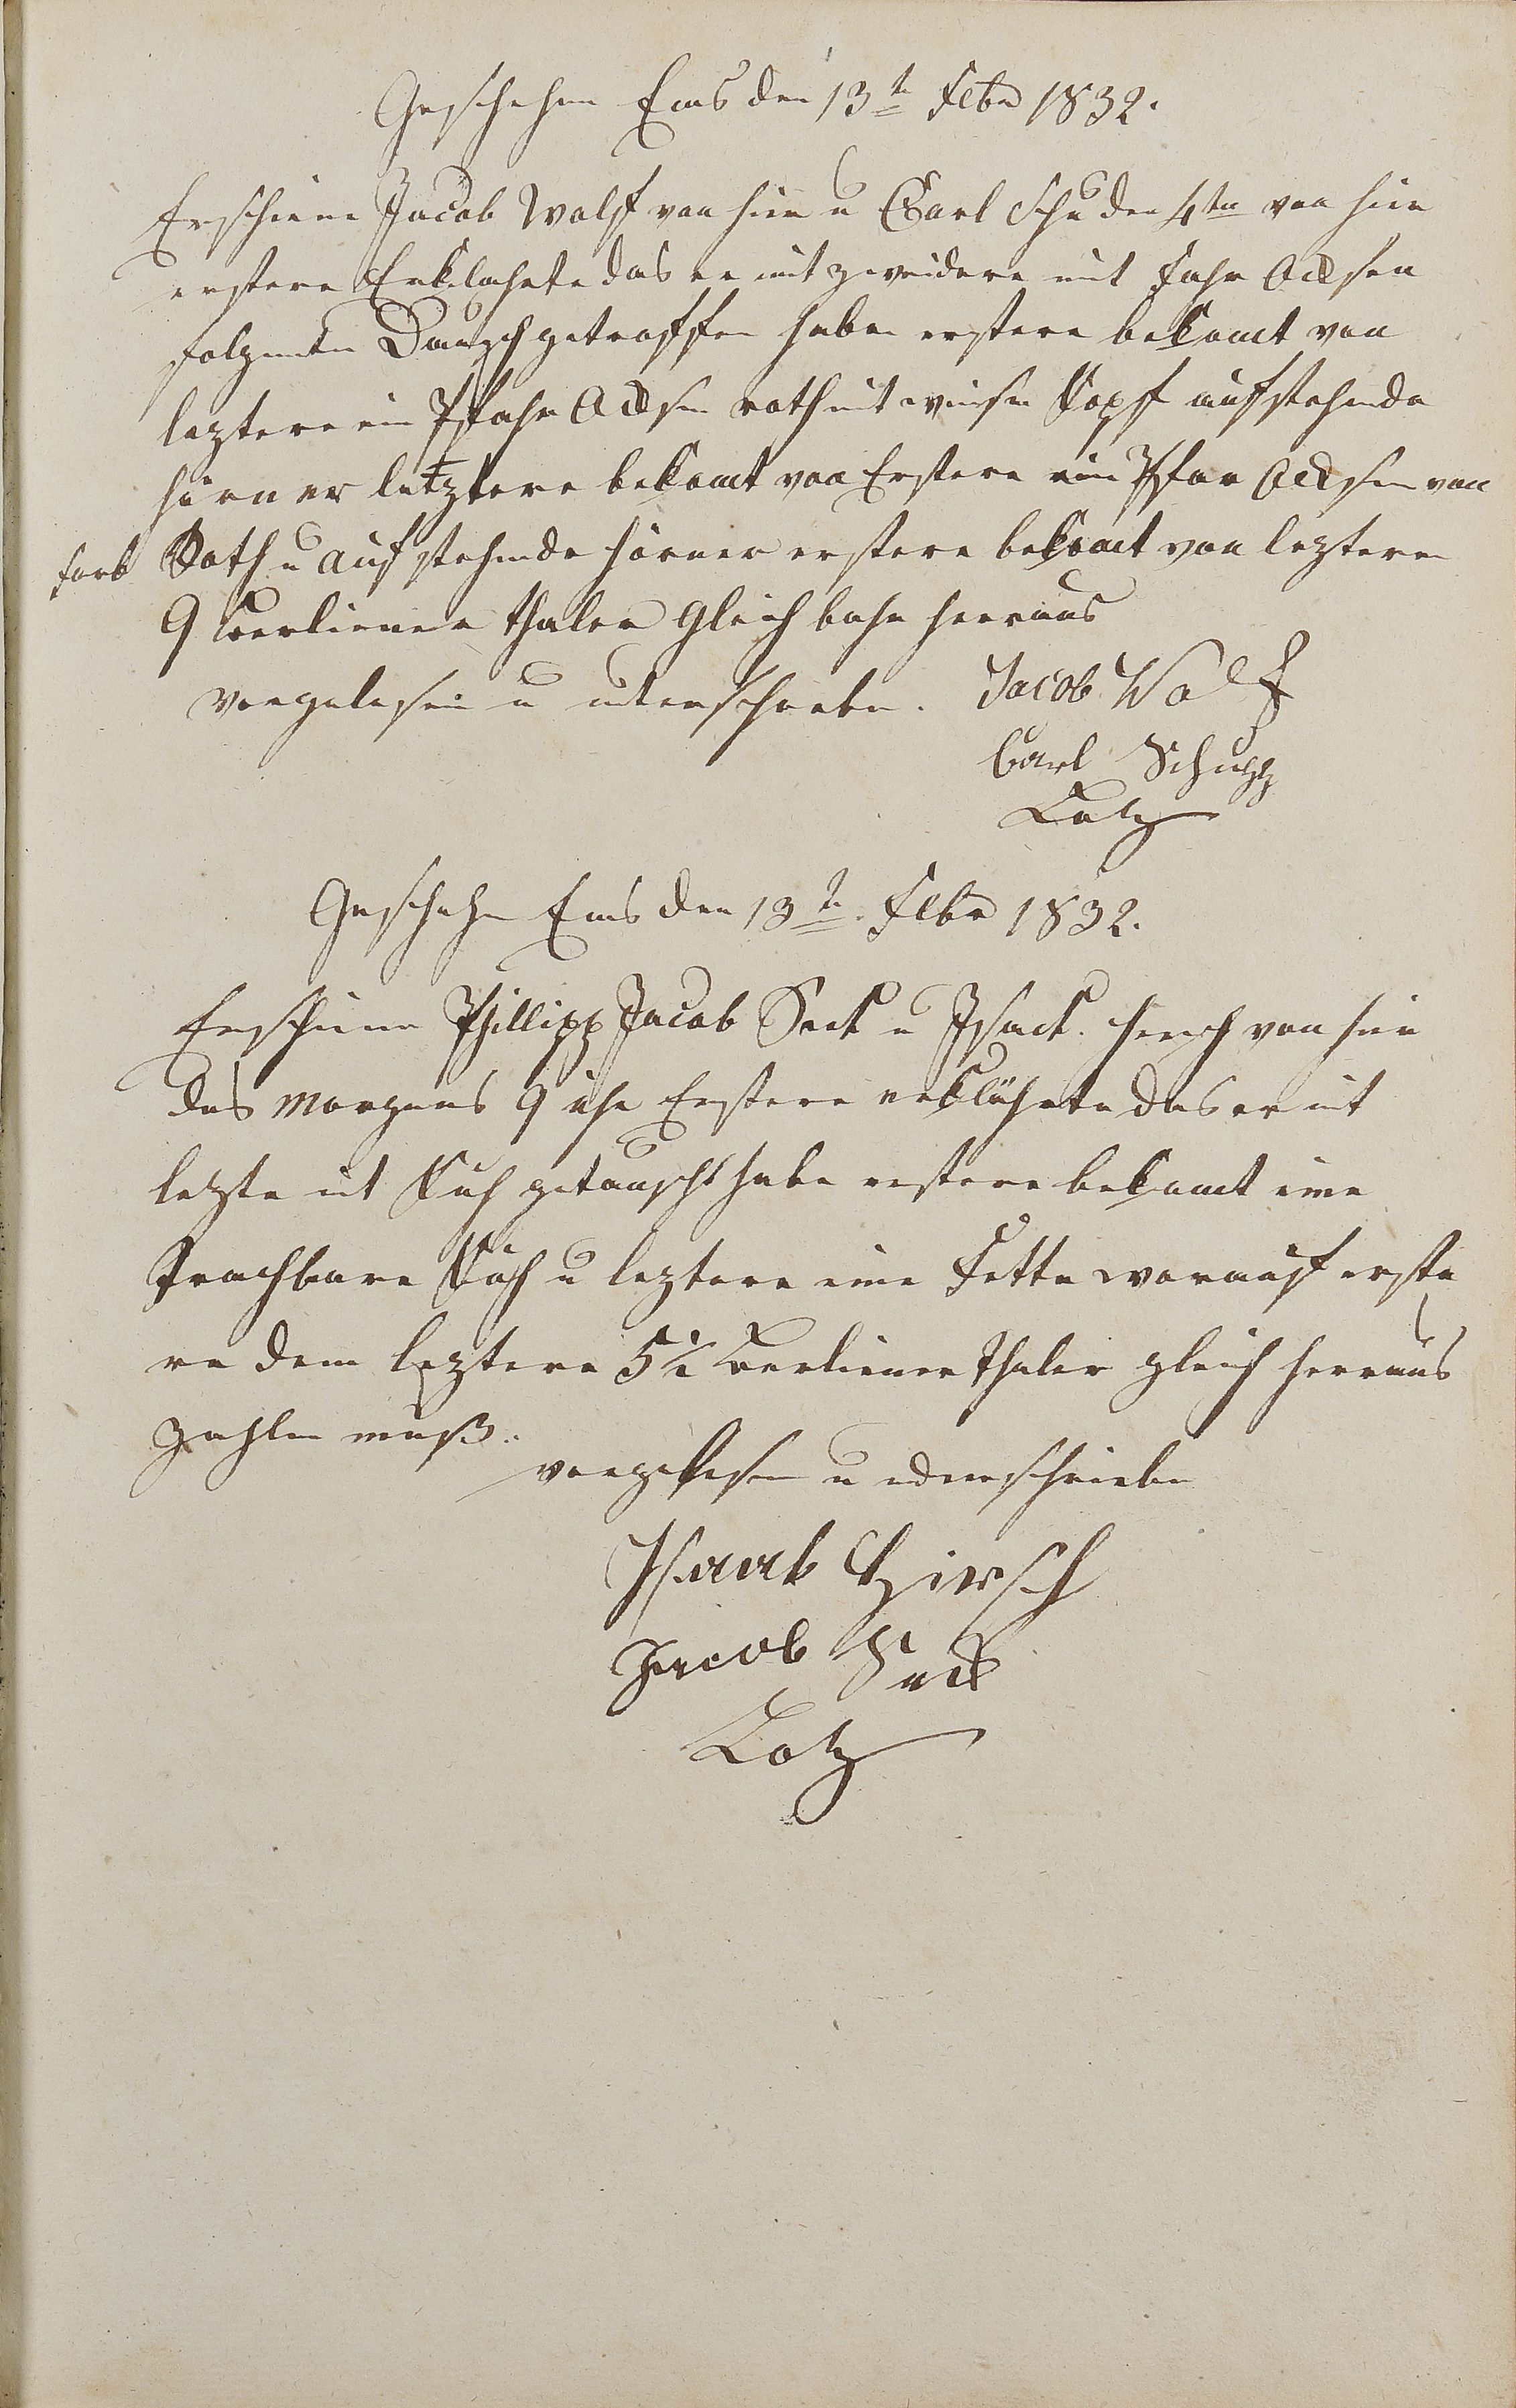 Geschehen Ems den 13t Febr 1832.
Erschiene Jacob Wolf von hier u Carl Schu den 4ten von hier
erstere Erklahrte das er mit zweidere mit Fahr Ocksen
folgenten Dausch getroffen haben erstere bekomt von
leztere ein Pfahr Ocksen roth mit weisen Kopf aufstehende
hörner letztere bekomt von Erstere ein Pfar Ocksen von
farb Roth u auf stehende hörner erstere bekomt von lezteren
9 berliener thaler gleich bahr herraus
vorgelesen u unterschrieben. Jacob Wolf
Carl Schupp
Lotz
Geschehn Ems den 13t. Febr 1832.
Erschiene Phillipp Jacob Seck u Isack hirsch von hier
des Morgens 9 uhr Erstere erklährte das er mit
lezte mit Kuh getauscht habe erstere bekomt eine
Frachbare Kuh u leztere eine Fette worauf erste
re dem leztere 5½ berliener thaler gleich herraus
zahlen muß.
vorgelesen u underschrieben
Isaak Hirsch
Jacob Seck
Lotz